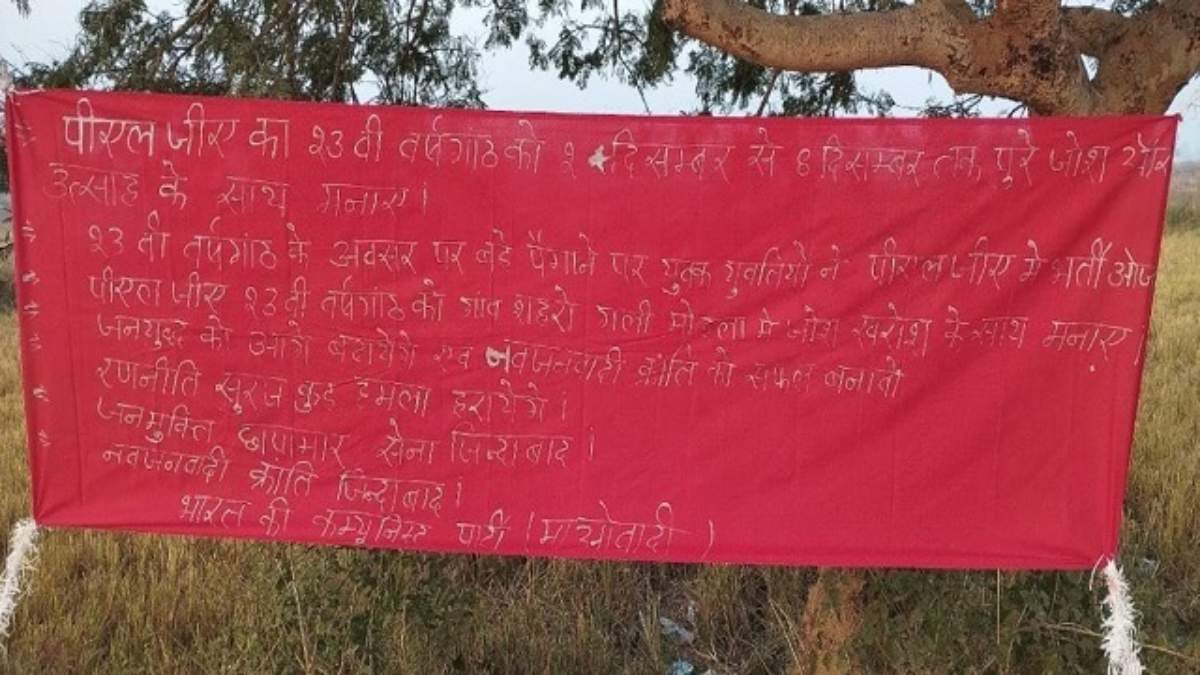 पीएल जीए का २३ वी वर्षगांठ को २ दिसम्बर से ८ दिसम्बर तक पुरे जोश और
उत्साह के साथ मनाए।
२३ वी वर्षगांठ के अवसर पर बडे पैमाने पर युवक युवतियो ने पीएल जीए मे भर्ती ओज
पीएल जीए २३ वी वर्षगांठ को गांव शहरो गली मोहल्ला मे जोश खरोश के साथ मनाए।
जनयुद्ध को आगे बढायेगे एव नवजनवादी क्रांति को सफल बनावो
रणनीति सुरज कुड हमला हरायेगे।
जनमुक्ति छापामार सेना जिन्दाबाद।
नवजनवादी क्रांति जिन्दाबाद।
भारत की कम्युनिस्ट पार्टी (माओवादी)